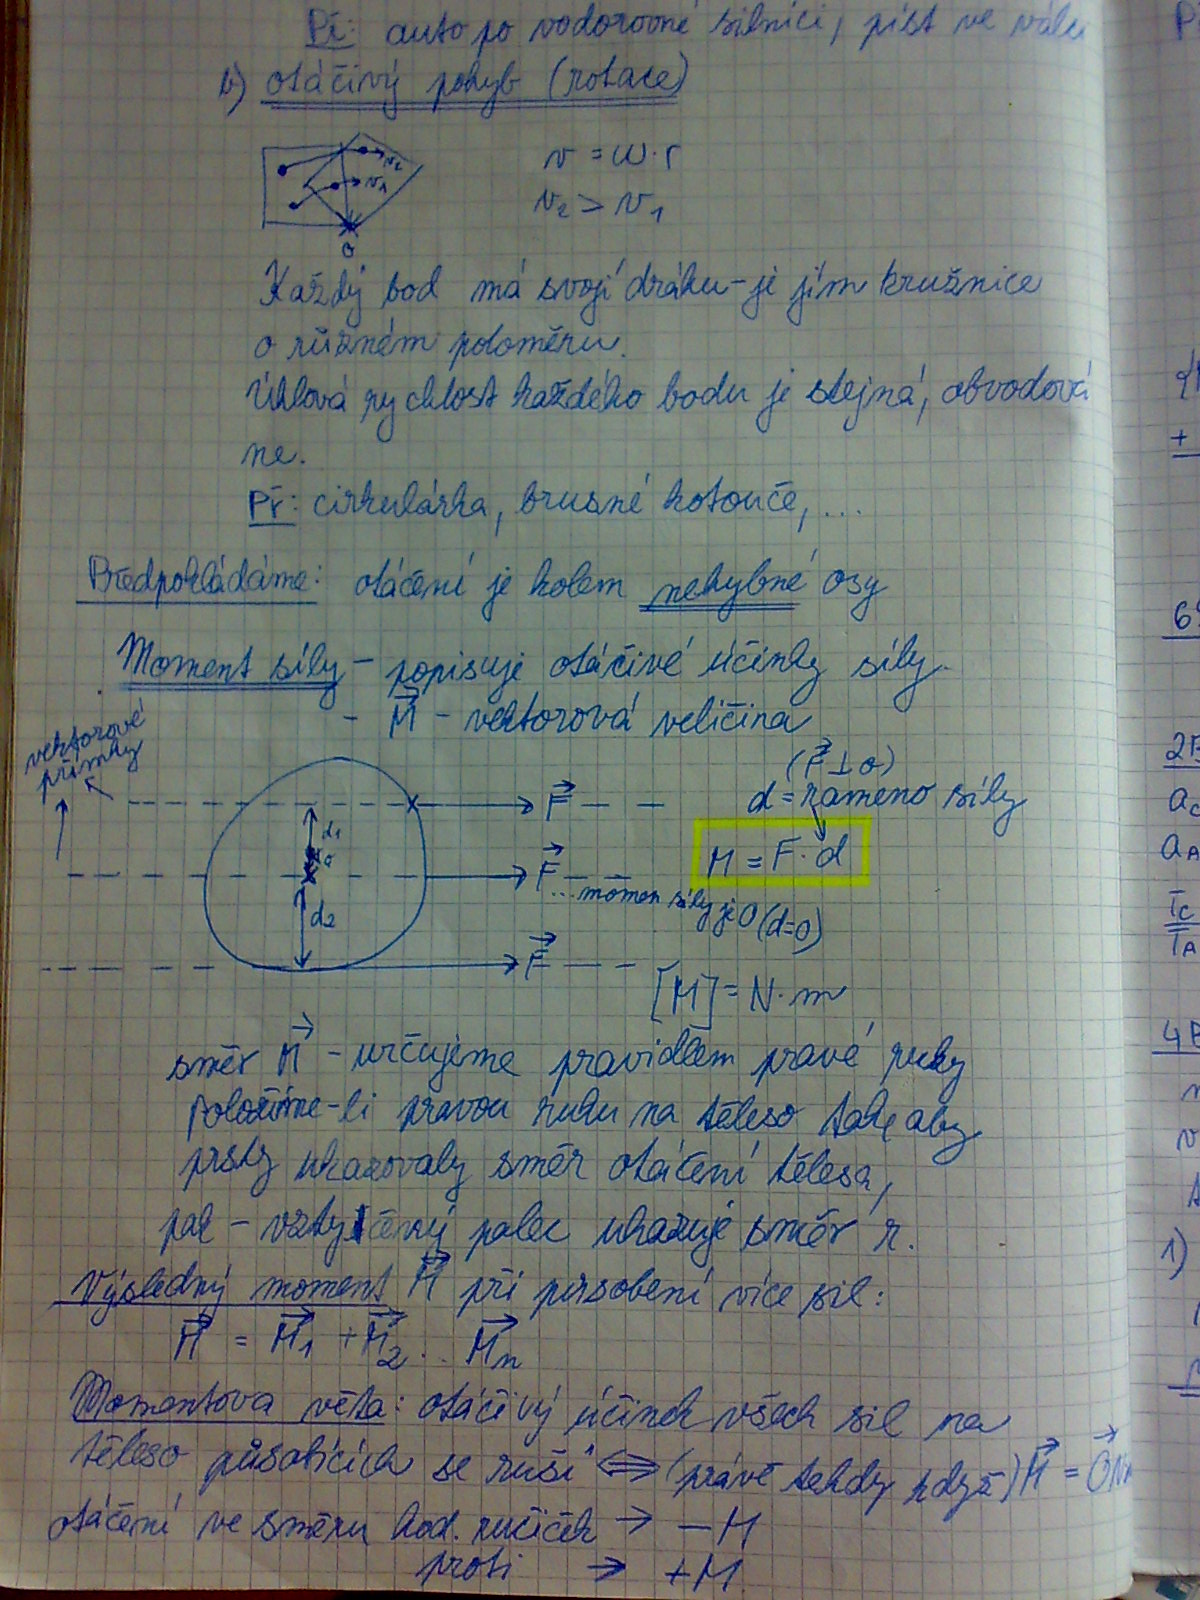 Př: auto po vodorovné silnici, píst ve válci
b) otáčivý pohyb (rotace)
v = ω·r
v2 > v1
v2
v1
o
Každý bod má svojí dráhu - je jím kružnice
o různém poloměru.
Úhlová rychlost každého bodu je stejná, obvodová
ne.
Př: cirkulárka, brusné kotouče, ...
Předpokládáme: otáčení je kolem nehybné osy
Moment síly - popisuje otáčivé účinky síly.
- M⃗ - vektorová veličina
vektorové
přímky
(F⃗ ⊥ o)
d = rameno síly
F⃗
d1
o
M = F · d
F⃗
... momen síly je 0 (d=0)
d2
F⃗
[M] = N·m
směr M⃗ - určujeme pravidlem pravé ruky
Položíme-li pravou ruku na těleso tak, aby
prsty ukazovaly směr otáčení tělesa,
pak - vztyčený palec ukazuje směr
Výsledný moment M⃗ při působení více sil:
M⃗ = M⃗1 + M⃗2 ... M⃗n
Momentova věta: otáčivý účinek všech sil na
těleso působících se ruší ⟺ (právě tehdy když) M⃗ = 0⃗
otáčení ve směru hod. ručiček → -M
proti → +M